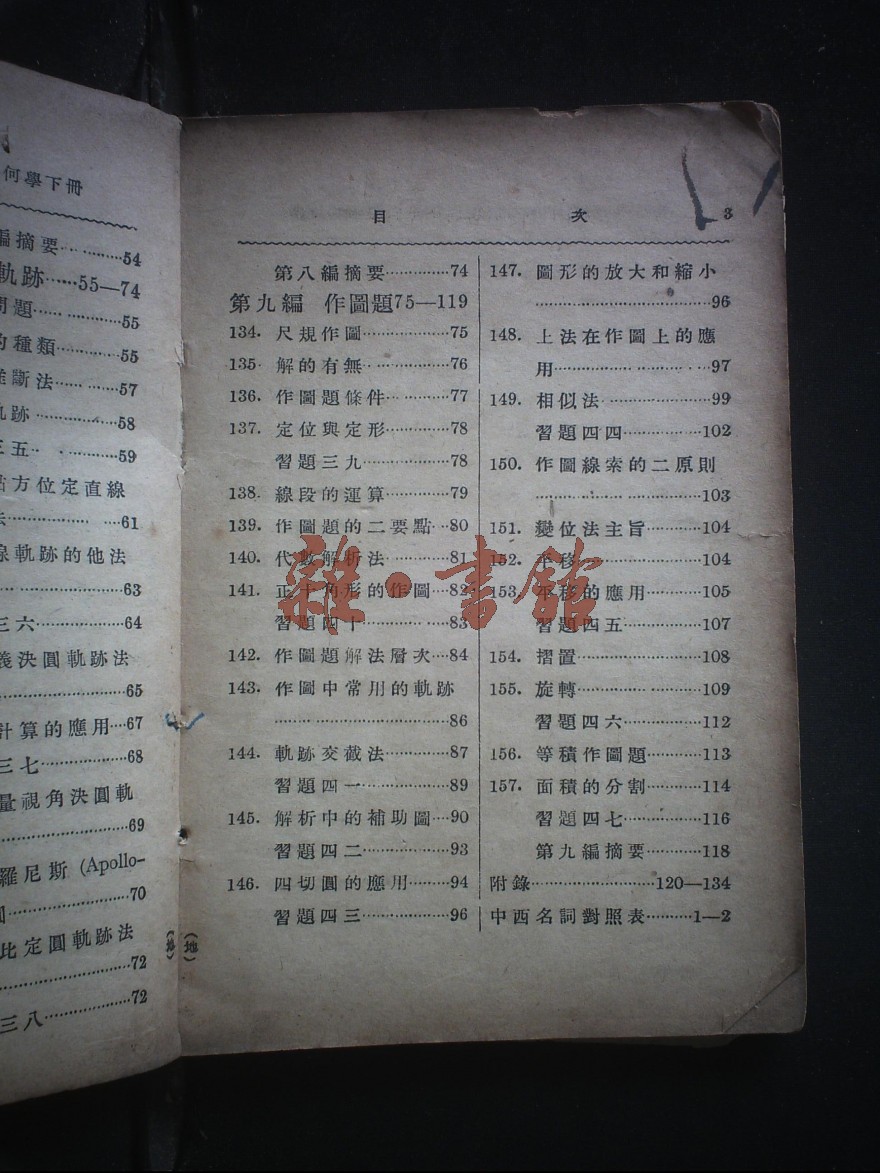 何學下冊
編摘要……………54
軌跡……55—74
問題……………55
的種類…………55
推斷法…………57
軌跡……………58
三五……………59
方位定直線
法………………61
線軌跡的他法
……………………63
三六……………64
義決圓軌跡法
……………………65
計算的應用…67
三七……………68
量視角決圓軌
……………………69
羅尼斯 (Apollo-
……………………70
比定圓軌跡法
……………………72
三八……………72
目 次 3
第八編摘要…………74
第九編 作圖題75—119
134. 尺規作圖…………75
135. 解的有無…………76
136. 作圖題條件………77
137. 定位與定形………78
習題三九…………78
138. 線段的運算………79
139. 作圖題的二要點…80
140. 代數解析法………81
141. 正十角形的作圖…82
習題四十…………83
142. 作圖題解法層次…84
143. 作圖中常用的軌跡
……………………86
144. 軌跡交截法………87
習題四一…………89
145. 解析中的補助圖…90
習題四二…………93
146. 四切圓的應用……94
習題四三…………96
147. 圖形的放大和縮小
……………………96
148. 上法在作圖上的應
用…………………97
149. 相似法……………99
習題四四…………102
150. 作圖線索的二原則
……………………103
151. 變位法主旨………104
152. 平移………………104
153. 平移的應用………105
習題四五…………107
154. 摺置………………108
155. 旋轉………………109
習題四六…………112
156. 等積作圖題………113
157. 面積的分割………114
習題四七…………116
第九編摘要………118
附錄……………120—134
中西名詞對照表………1—2
(地)
雜·書館